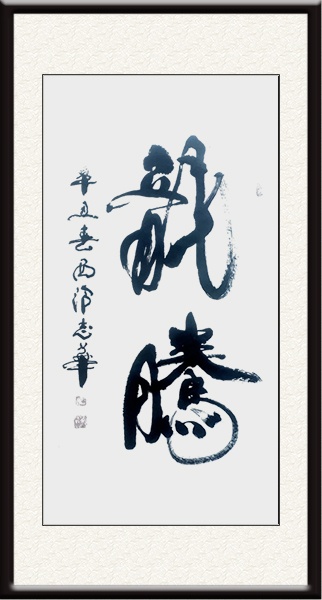 龍騰
辛丑春西沢志華